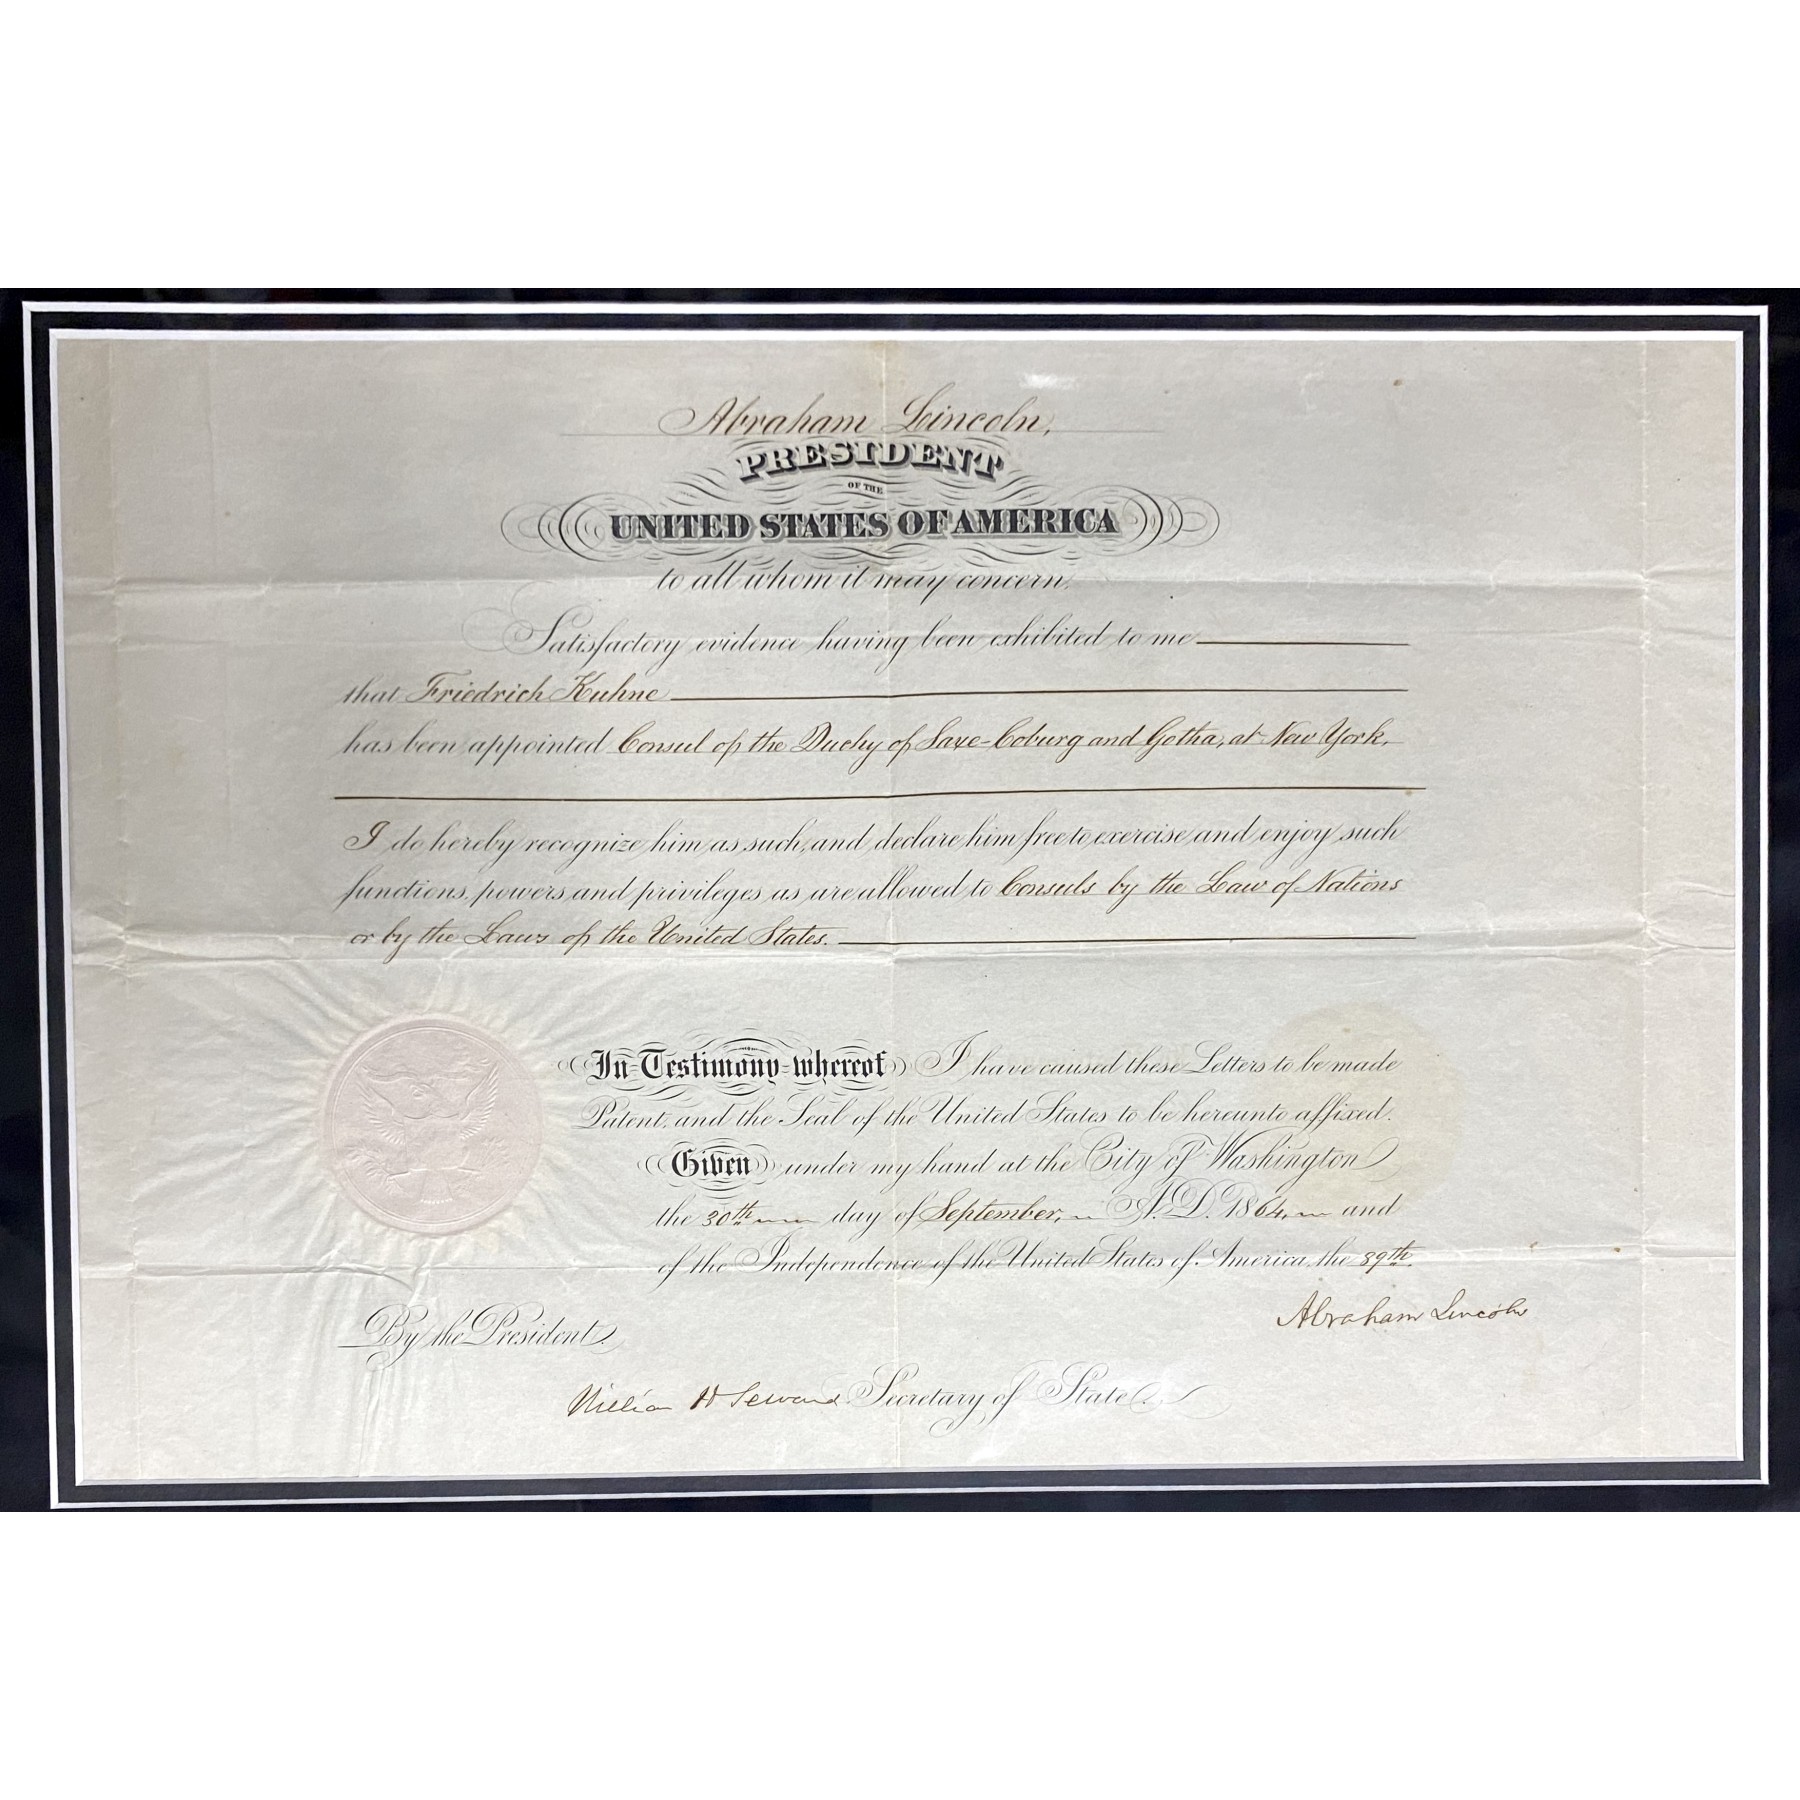 Abraham Lincoln,
PRESIDENT
OF THE
UNITED STATES OF AMERICA
to all whom it may concern.
Satisfactory evidence having been exhibited to me
that Friedrich Kuhne
has been appointed Consul of the Duchy of Saxe-Coburg and Gotha, at New York,
I do hereby recognize him as such, and declare him free to exercise and enjoy such
functions, powers and privileges as are allowed to Consuls by the Law of Nations
or by the Laws of the United States.
In Testimony whereof I have caused these Letters to be made
Patent, and the Seal of the United States to be hereunto affixed.
Given under my hand at the City of Washington
the 30th day of September, A.D. 1864, and
of the Independence of the United States of America, the 89th.
Abraham Lincoln
By the President.
William H Seward Secretary of State.